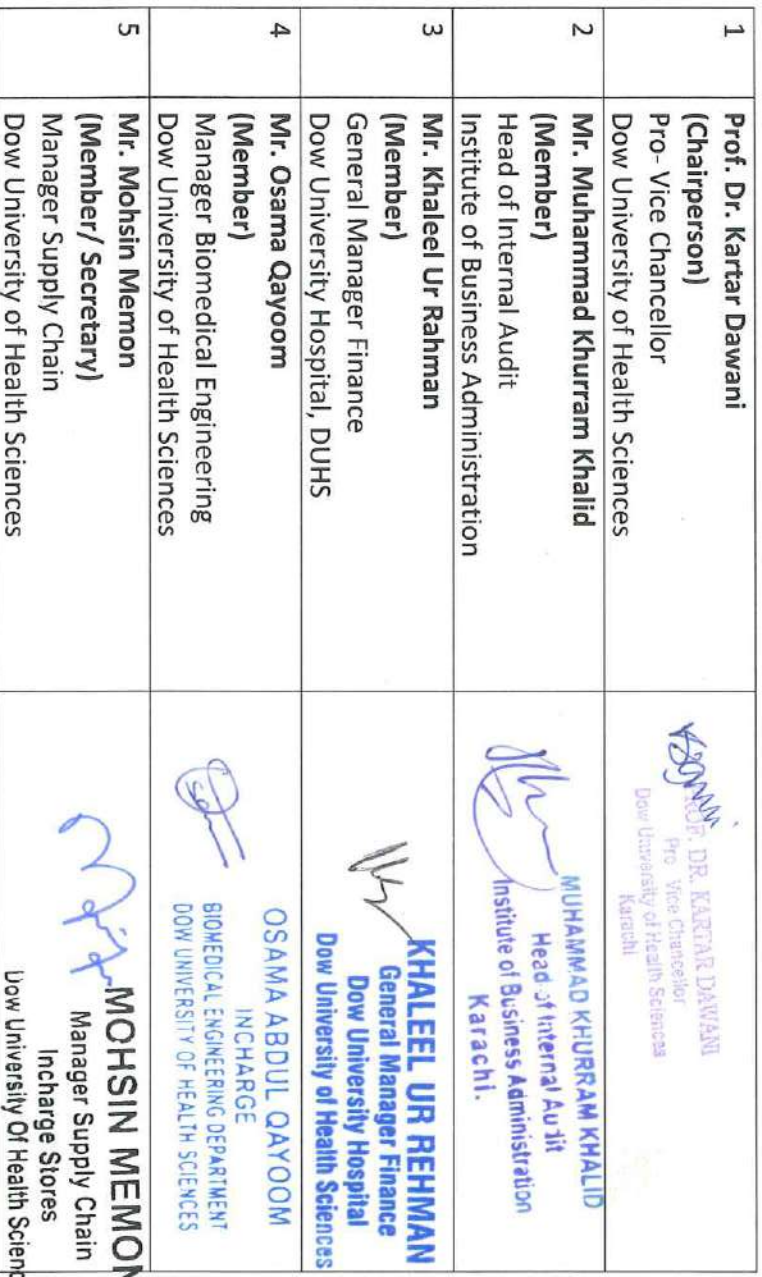 1
Prof. Dr. Kartar Dawani
(Chairperson)
Pro- Vice Chancellor
Dow University of Health Sciences
PROF. DR. KARTAR DAWANI
Pro Vice Chancellor
Dow University of Health Sciences
Karachi
2
Mr. Muhammad Khurram Khalid
(Member)
Head of Internal Audit
Institute of Business Administration
MUHAMMAD KHURRAM KHALID
Head of Internal Audit
Institute of Business Administration
Karachi.
3
Mr. Khaleel Ur Rahman
(Member)
General Manager Finance
Dow University Hospital, DUHS
KHALEEL UR REHMAN
General Manager Finance
Dow University Hospital
Dow University of Health Sciences
4
Mr. Osama Qayoom
(Member)
Manager Biomedical Engineering
Dow University of Health Sciences
OSAMA ABDUL QAYOOM
INCHARGE
BIOMEDICAL ENGINEERING DEPARTMENT
DOW UNIVERSITY OF HEALTH SCIENCES
5
Mr. Mohsin Memon
(Member/ Secretary)
Manager Supply Chain
Dow University of Health Sciences
MOHSIN MEMON
Manager Supply Chain
Incharge Stores
Dow University Of Health Scienc